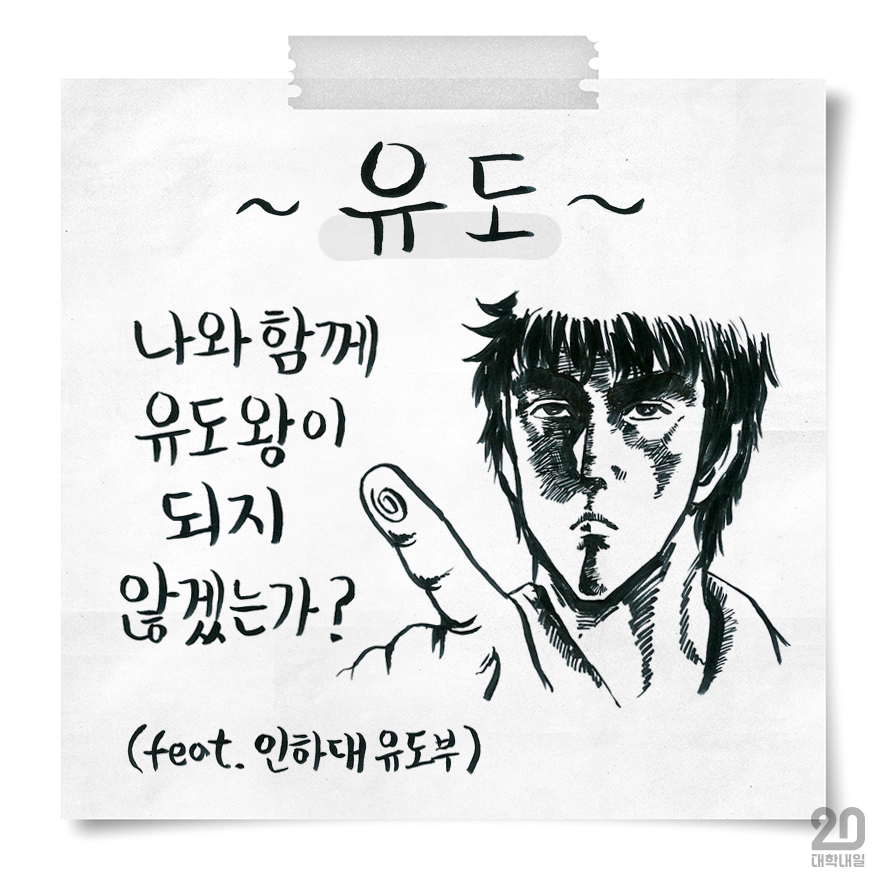 ~ 유도 ~
나와 함께
유도왕이
되지
않겠는가?
(feat. 인하대 유도부)
20
대학내일